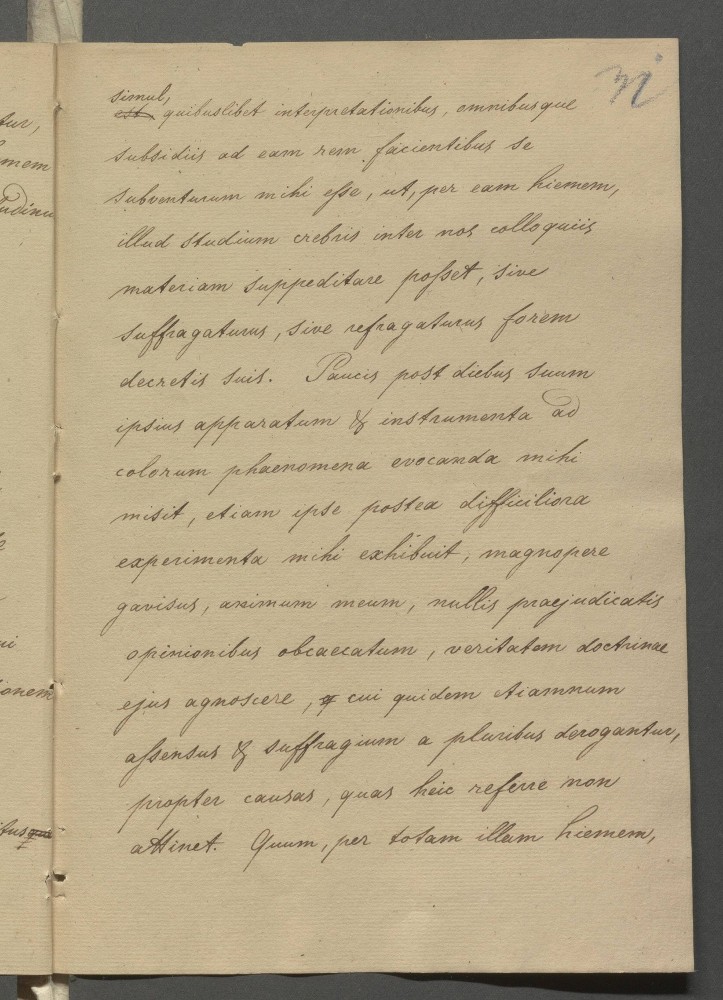 simul,
est quibuslibet interpretationibus, omnibusque
subsidiis ad eam rem facientibus se
subventurum mihi eſse, ut, per eam hiemem,
illud studium crebris inter nos colloquiis
materiam suppeditare poſset, sive
suffragaturus, sive refragaturus forem
decretis suis. Paucis post diebus suum
ipsius apparatum & instrumenta ad
colorum phaenomena evocanda mihi
misit, etiam ipse postea difficiliora
experimenta mihi exhibuit, magnopere
gavisus, animum meum, nullis praejudicatis
opinionibus obcaecatum, veritatem doctrinae
ejus agnoscere, cui quidem etiamnum
aſsensus & suffragium a pluribus derogantur,
propter causas, quas heic referre non
attinet. Quum, per totam illam hiemem,
tur,
mem
ui
ionem